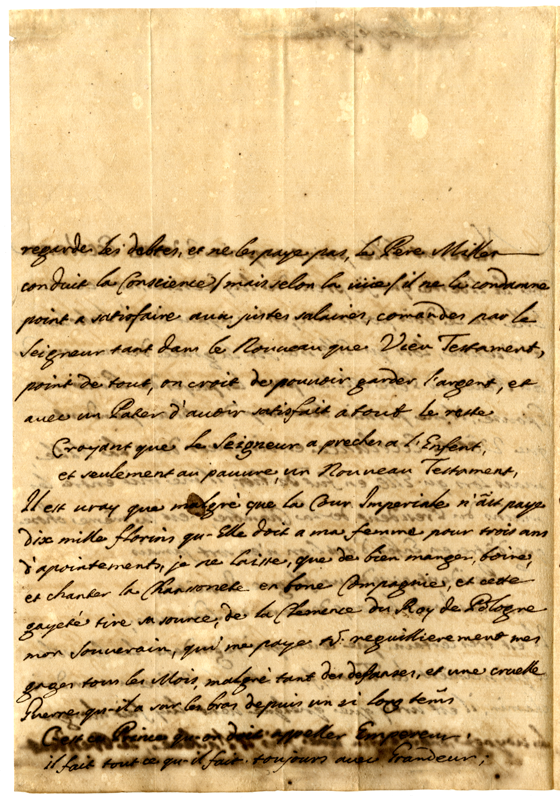 regarde les debtes, et ne les paye pas, le Pere Miller
conduit la Conscience / mais selon la viiie / il ne la condamne
point a satisfaire aux justes salaires, comandes par le
Seigneur tant dans le Nouveau que Vieu Testament,
point de tout, on croit de pouvoir garder l'argent, et
avec un Pater d'avoir satisfait a tout le reste
Croyant que le Seigneur a preches a l'Enfent,
et seulement au pauvre, un Nouveau Testament,
Il est vray que malgré que la Cour Imperiale n'ait paye
dix mille florins qu'Elle doit a ma femme pour trois ans
d'apointements, je ne laisse, que de bien manger, boire,
et chanter la Chansonete en bone Compagnie, et cette
gayeté tire sa source, de la Clemence du Roy de Pologne
mon Souverain, qui me paye regullierement mes
gages tous les Mois, malgré tant des despanses, et une cruelle
Guerre qu-il a sur les bras depuis un si long tems
C'est ce Prince qu-on doit appeller Empereur;
il fait tout ce qu-il fait toujours avec Grandeur;